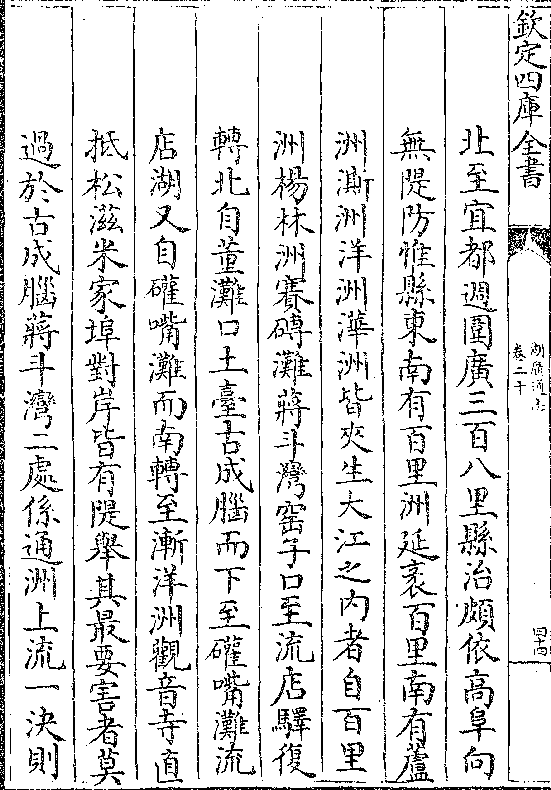 欽定四庫全書
湖廣通志
卷二十
四高
北至宜都週圍廣三百八里縣治頗依高阜向
無隄防惟縣東南有百里洲延袤百里南有蘆
洲澌洲洋洲澕洲皆夾生大江之内者自百里
洲楊林洲賽磚灘蔣斗灣窑子口至流店驛復
轉北自董灘口土臺古成腦而下至䃶嘴灘流
店湖又自䃶嘴灘而南轉至漸洋洲觀音寺直
抵松滋米家埠對岸皆有隄舉其最要害者莫
過於古成腦蔣斗灣二處係通洲上流一決則